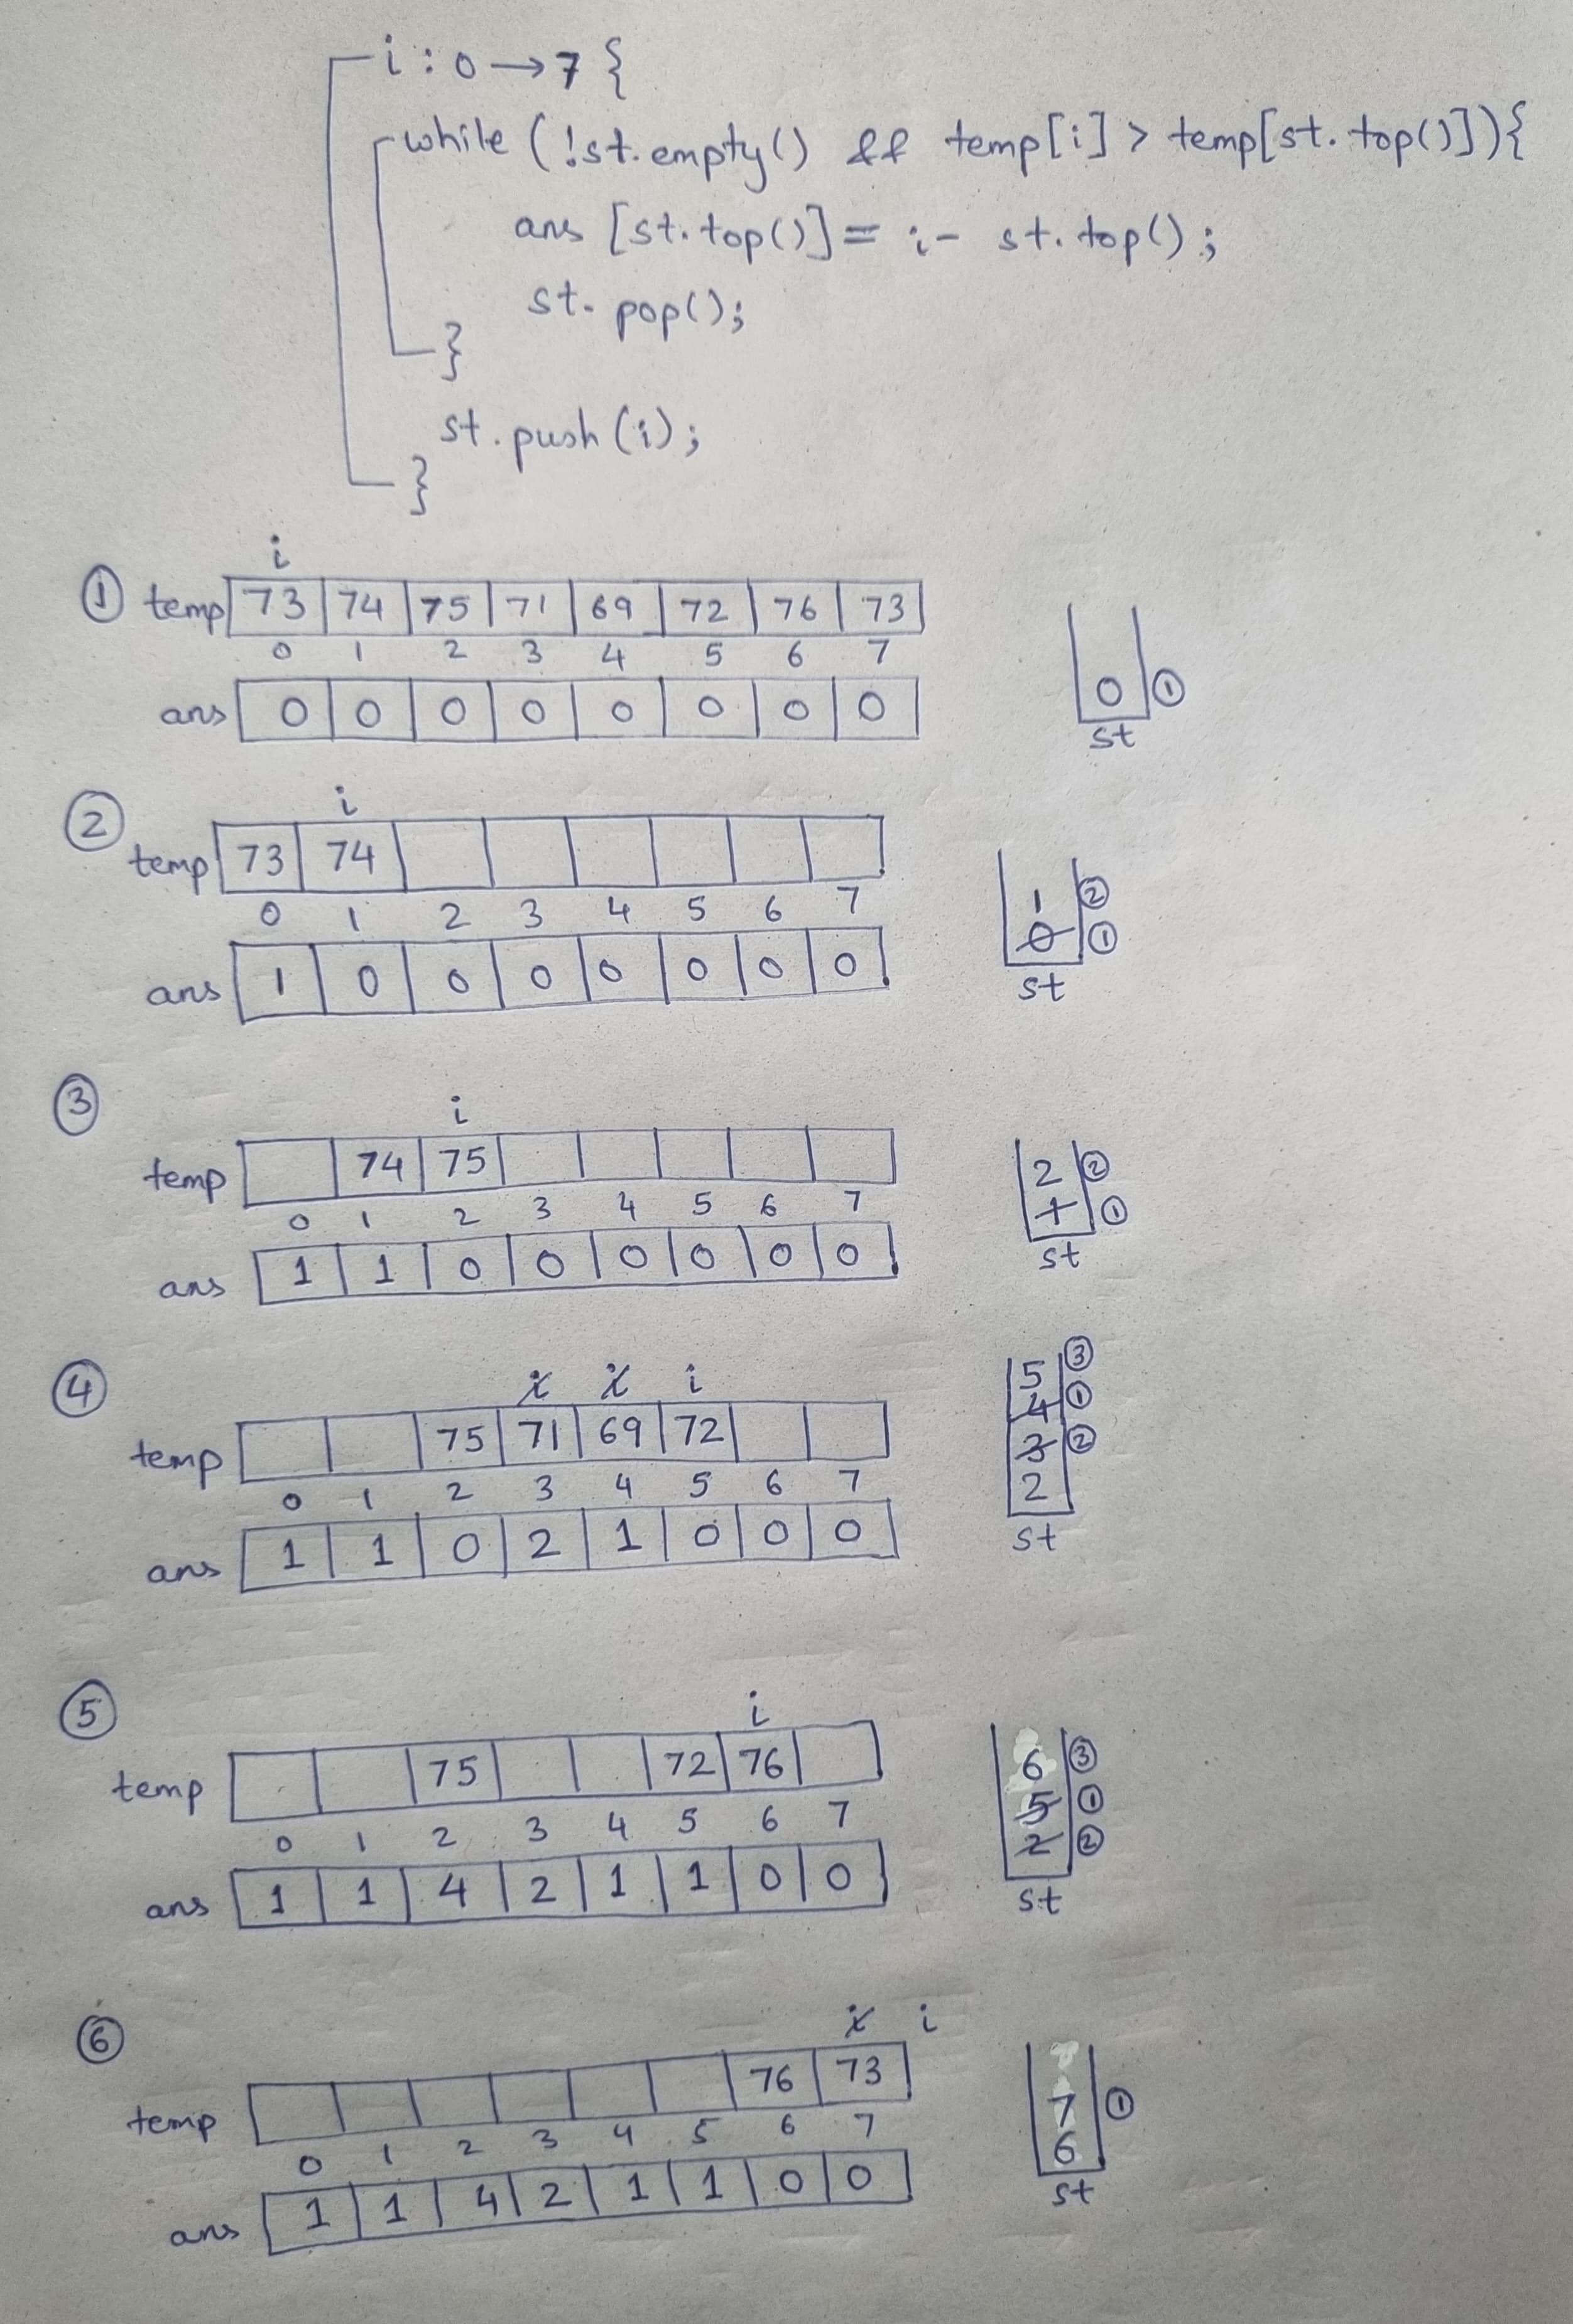 i : 0 → 7 {
while ( !st.empty() && temp[i] > temp[st.top()]){
ans [st.top()] = i - st.top();
st.pop();
}
st.push(i);
}
i
① temp 73 74 75 71 69 72 76 73
0 1 2 3 4 5 6 7
ans 0 0 0 0 0 0 0 0
0 ①
st
② i
temp 73 74
0 1 2 3 4 5 6 7
ans 1 0 0 0 0 0 0 0
1 ②
0 ①
st
③ i
temp 74 75
0 1 2 3 4 5 6 7
ans 1 1 0 0 0 0 0 0
2 ②
1 ①
st
④ i i i
temp 75 71 69 72
0 1 2 3 4 5 6 7
ans 1 1 0 2 1 0 0 0
5 ③
4 ①
3 ②
2
st
⑤ i
temp 75 72 76
0 1 2 3 4 5 6 7
ans 1 1 4 2 1 1 0 0
6 ③
5 ①
2 ②
st
⑥ i i
temp 76 73
0 1 2 3 4 5 6 7
ans 1 1 4 2 1 1 0 0
7 ①
6
st